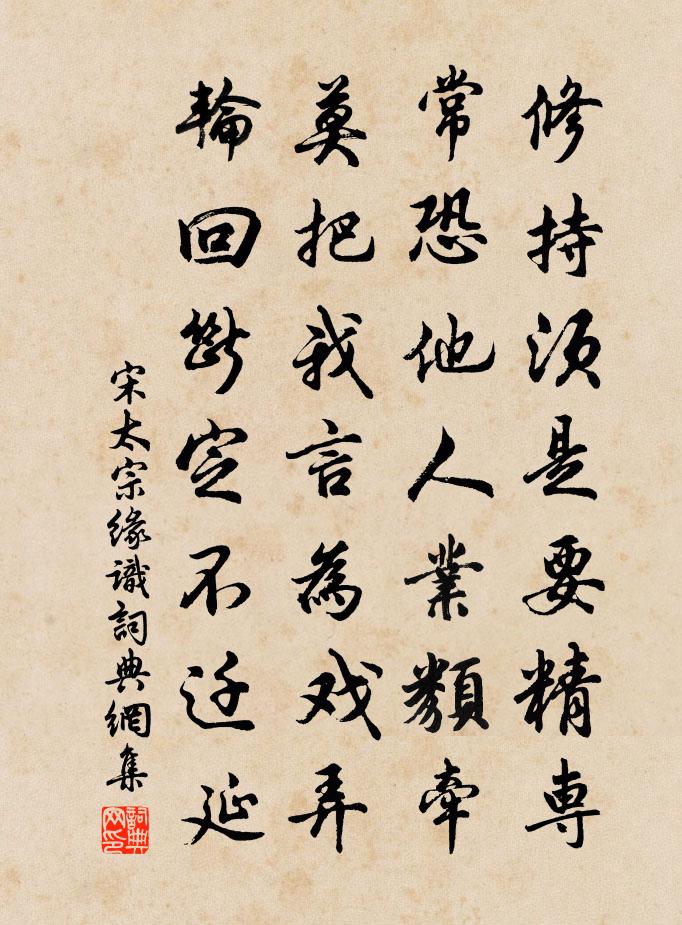 修持须是要精専
常恐他人業類牽
莫把我言為戏弄
輪回断定不迁延
宋太宗緣識詞典網集
詞典网印